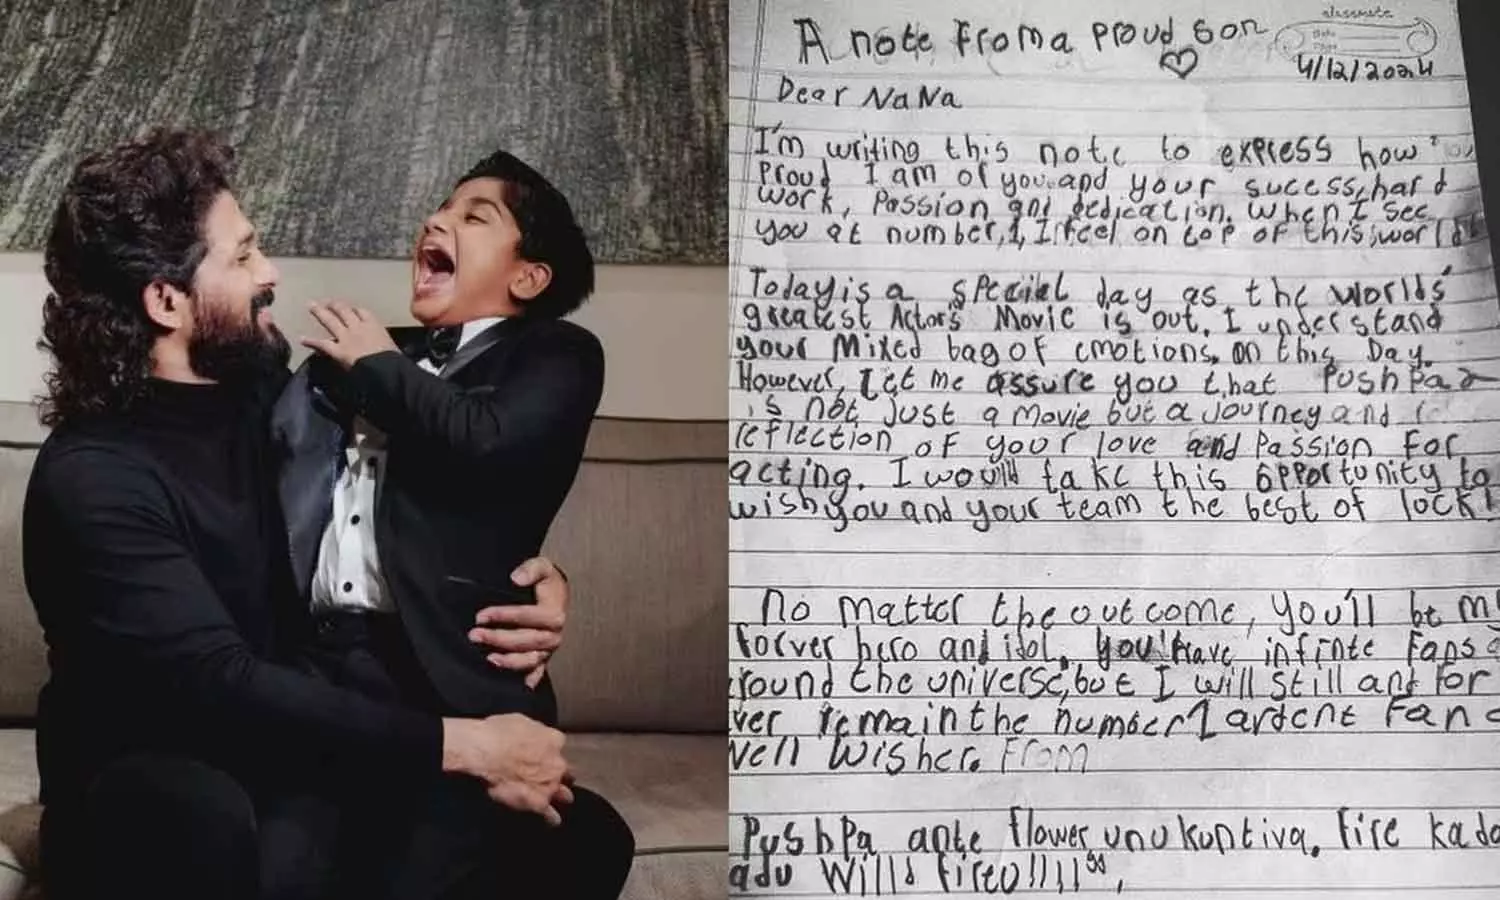 A note from a proud son
classmate
Date
Page
4/12/2024
Dear NaNa
I'm writing this note to express how
proud I am of you and your sucess, hard
work, Passion and dedication. When I see
you at number 1, I feel on top of this world
Today is a special day as the worlds'
greatest Actor's Movie is out. I understand
your Mixed bag of emotions on this Day.
However, Let me assure you that Pushpa 2
is not just a movie but a journey and
reflection of your love and Passion for
acting. I would take this opportunity to
wish you and your team the best of lock!
No matter the outcome, You'll be my
forver hero and idol. You'll Have infinte Fans a
round the universe, but I will still and for
ver remain the number 1 ardent Fan a
well wisher. From
PushPa ante flower unukuntiva. Fire kado
adu Willd fireo!!!!